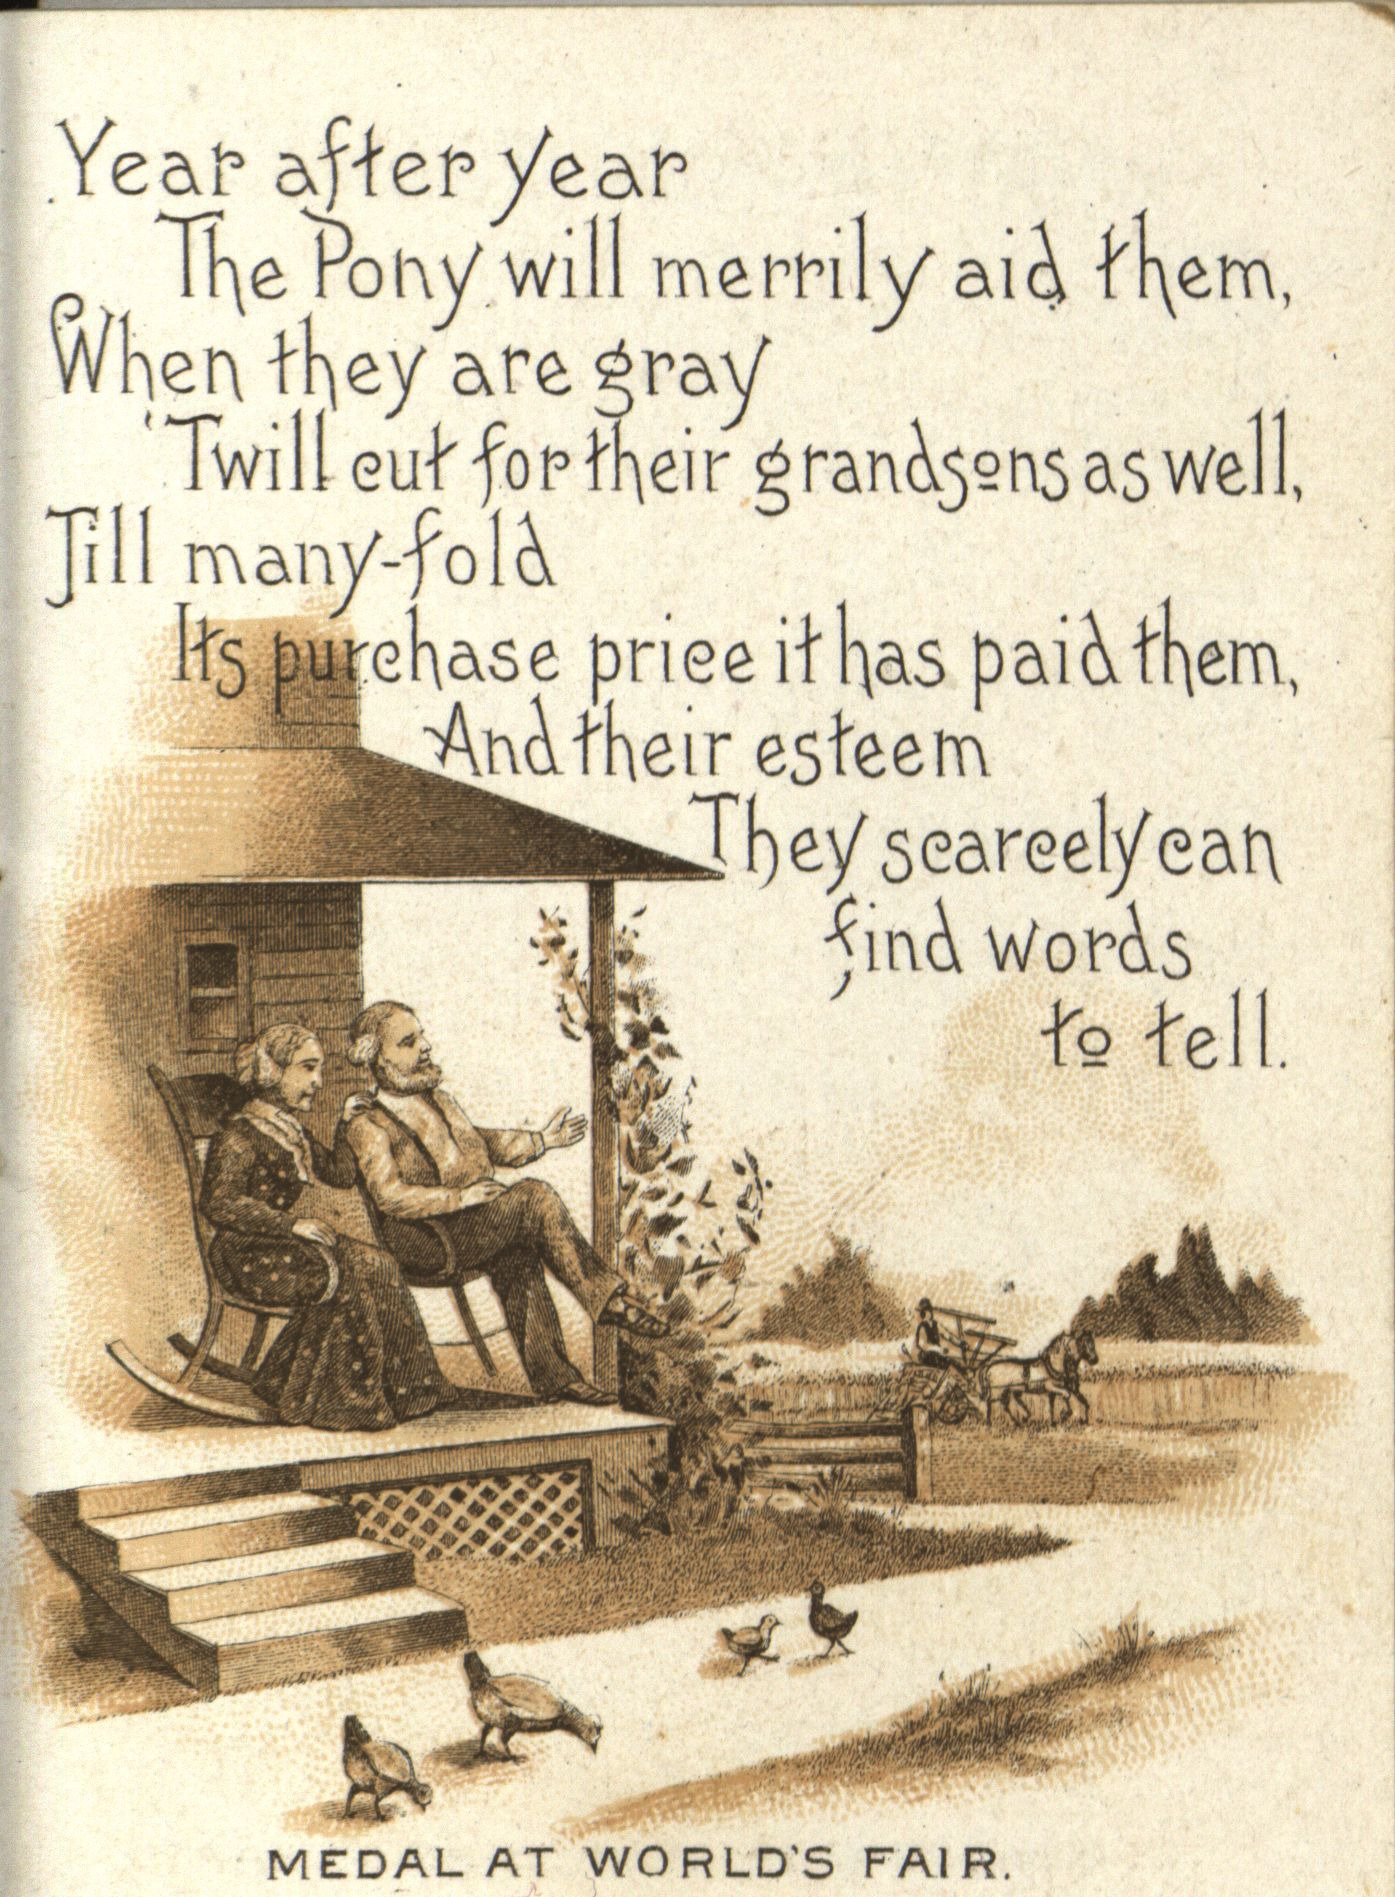 Year after year
The Pony will merrily aid them,
When they are gray
'Twill cut for their grandsons as well,
Till many-fold
Its purchase price it has paid them,
And their esteem
They scarcely can
find words
to tell.
MEDAL AT WORLD'S FAIR.